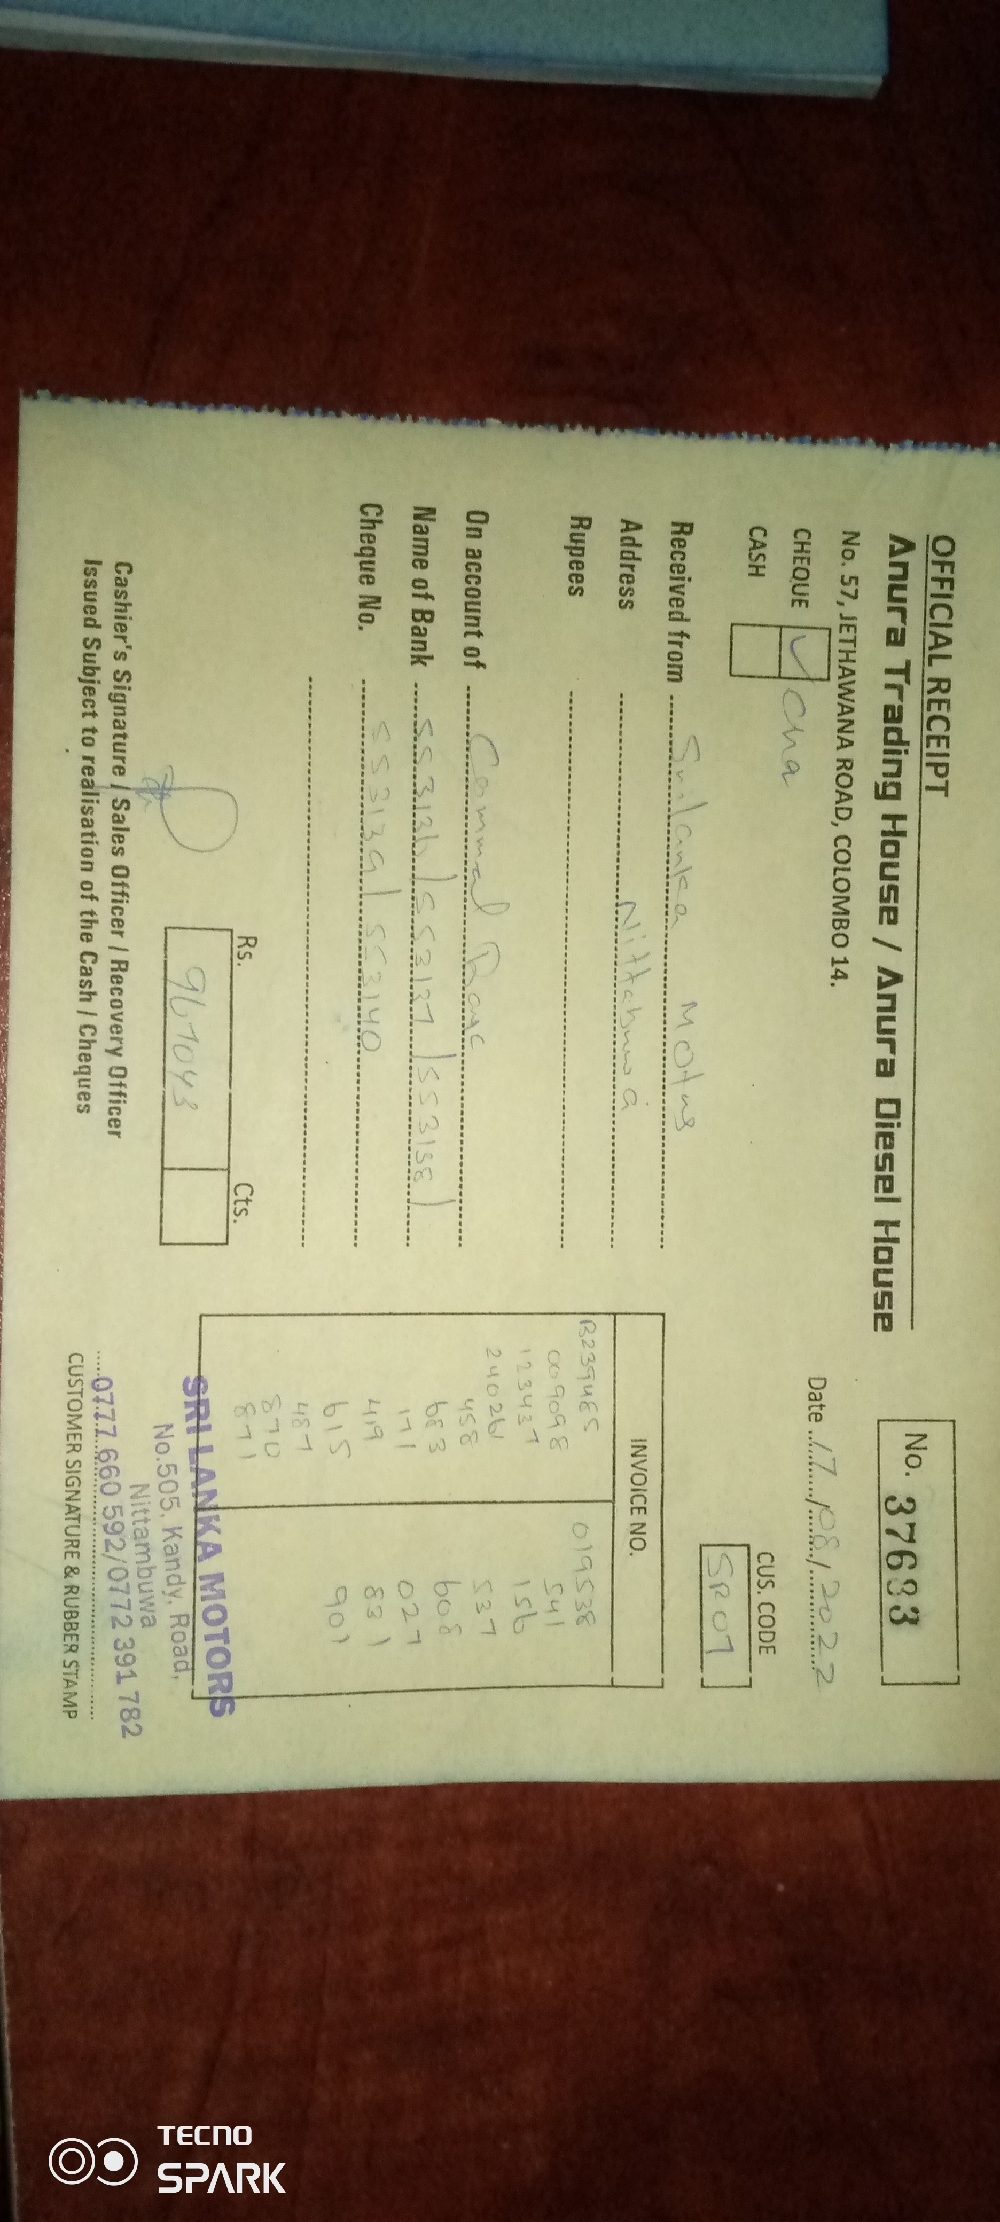 OFFICIAL RECEIPT
Anura Trading House / Anura Diesel House
No. 57, JETHAWANA ROAD, COLOMBO 14.
No. 37683
Date 17/08/2022
CHEQUE
CASH
CUS. CODE
SR07
Received from Srilanka Motors
Address Nittabuwa
Rupees
On account of
Name of Bank 553136/553137/553138/
Cheque No. 553139/553140
INVOICE NO.
B239485 019538
009098 541
123437 156
24026 537
458 608
683 027
171 831
419 901
615
487
870
871
Rs. Cts.
967043
Cashier's Signature / Sales Officer / Recovery Officer
Issued Subject to realisation of the Cash / Cheques
SRI LANKA MOTORS
No.505, Kandy, Road,
Nittambuwa
0777 660 592/0772 391 782
CUSTOMER SIGNATURE & RUBBER STAMP
TECNO
SPARK